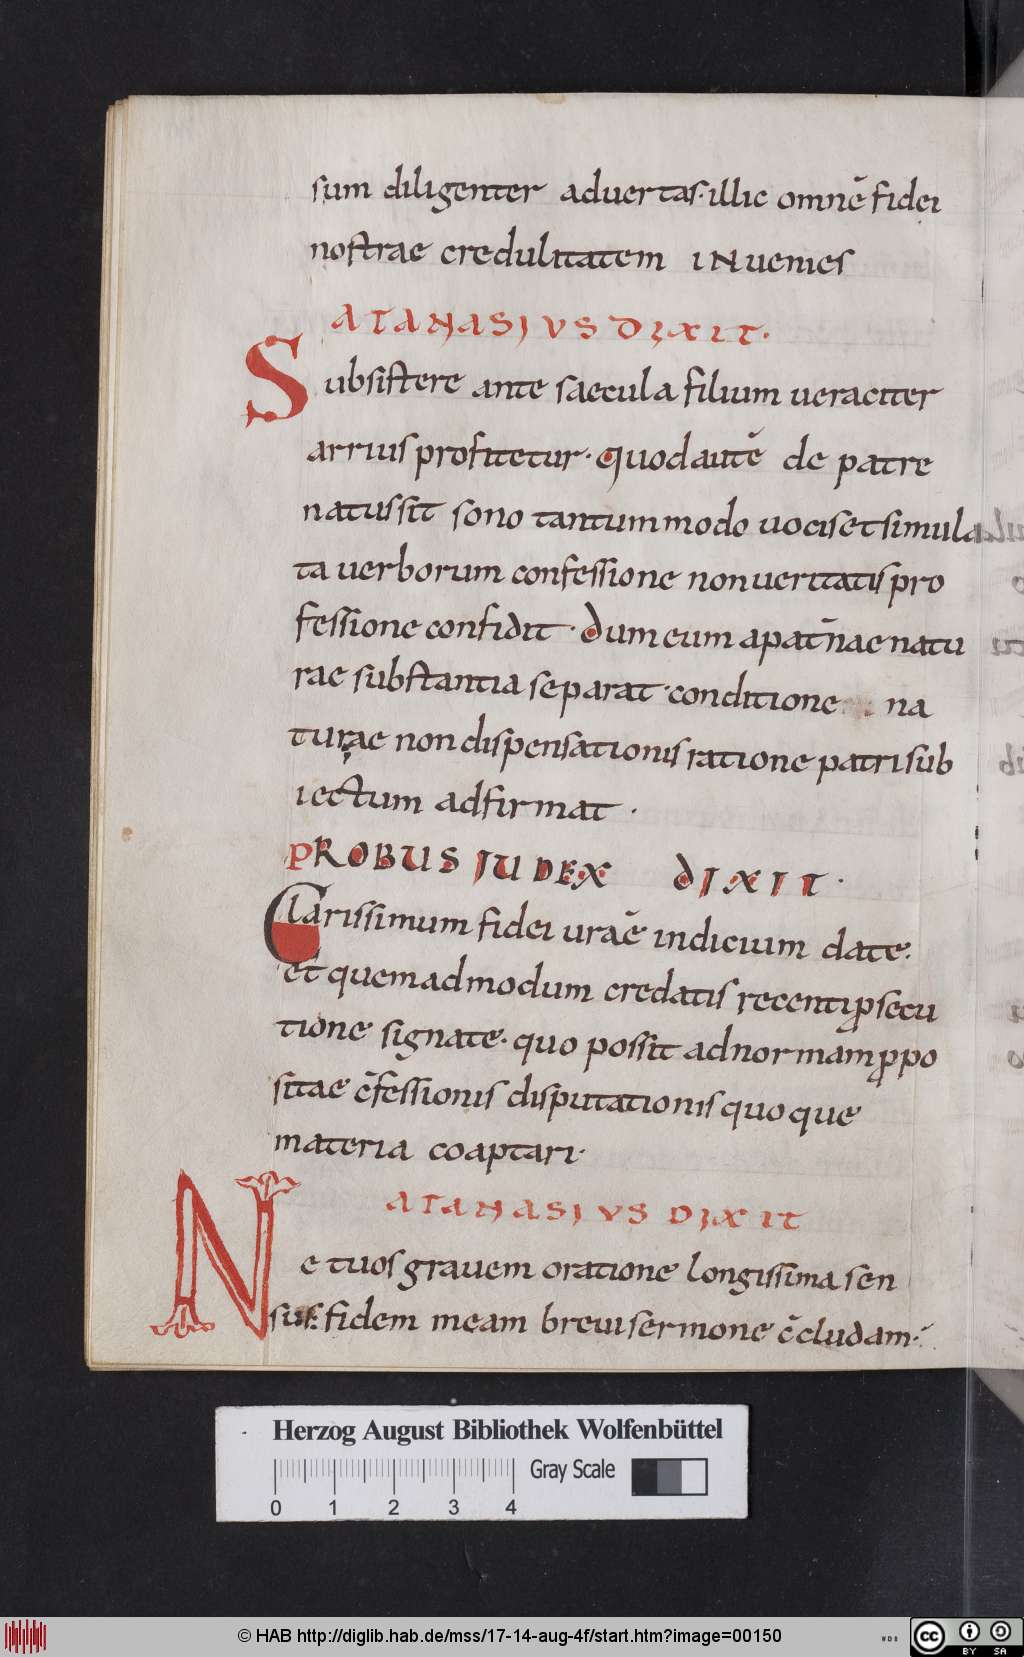 sum diligenter aduertas· illic omnē fidei
nostrae credulitatem inuenies
ATANASIVS DIXIT·
Subsistere ante saecula filium ueraciter
arrius profitetur· quod autē de patre
natus sit sono tantummodo uocis et simula
ta uerborum confessione non ueritatis pro
fessione confidit· dum eum a pat̄nae natu
rae substantia separat· conditione na
turae non dispensationis ratione patri sub
iectum adfirmat·
PROBUS IUDEX DIXIT·
Clarissimum fidei uraē indicium date·
et quemadmodum credatis recenti ꝓsecu
tione signate· quo possit ad normam ꝓpo
sitae c̄fessionis disputationis quoque
materia coaptari·
ATANASIVS DIXIT
Ne tuos grauem oratione longissima sen
sus· fidem meam breui sermone c̄cludam·
Herzog August Bibliothek Wolfenbüttel
Gray Scale
0 1 2 3 4
© HAB http://diglib.hab.de/mss/17-14-aug-4f/start.htm?image=00150
WDB
cc BY SA